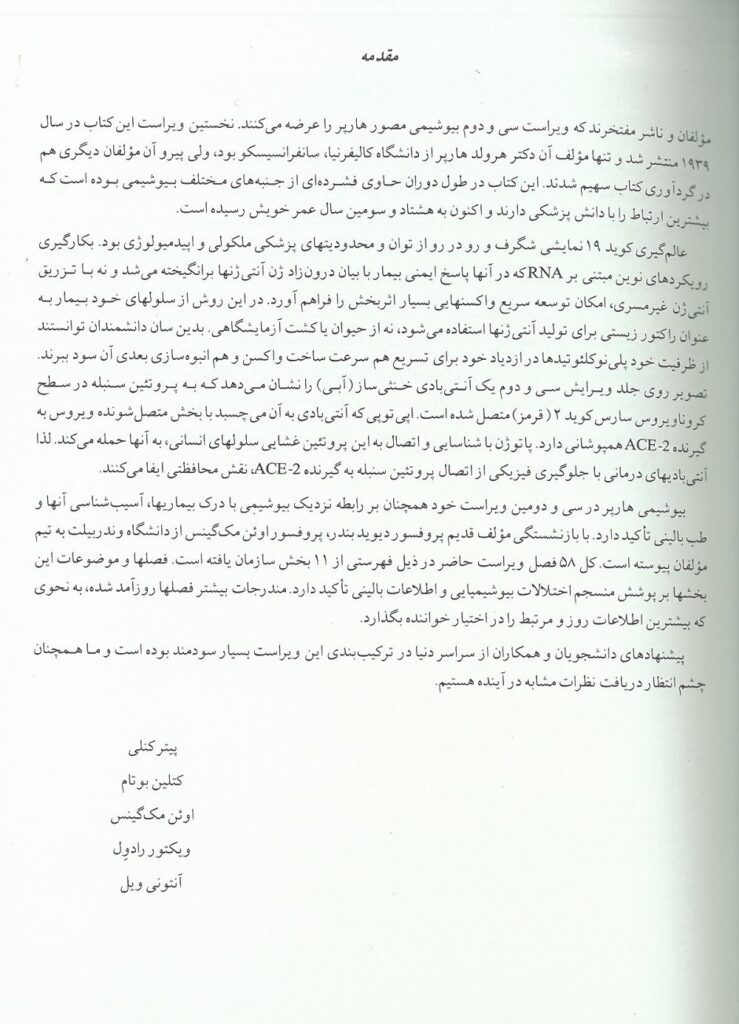 مقدمه
مؤلفان و ناشر مفتخرند که ویراست سی و دوم بیوشیمی مصور هارپر را عرضه می‌کنند. نخستین ویراست این کتاب در سال
۱۹۳۹ منتشر شد و تنها مؤلف آن دکتر هرولد هارپر از دانشگاه کالیفرنیا، سانفرانسیسکو بود، ولی پیرو آن مؤلفان دیگری هم
در گردآوری کتاب سهیم شدند. این کتاب در طول دوران حاوی فشرده‌ای از جنبه‌های مختلف بیوشیمی بوده است که
بیشترین ارتباط را با دانش پزشکی دارند و اکنون به هشتاد و سومین سال عمر خویش رسیده است.
عالم‌گیری کوید ۱۹ نمایشی شگرف و رو در رو از توان و محدودیتهای پزشکی ملکولی و اپیدمیولوژی بود. بکارگیری
رویکردهای نوین مبتنی بر RNA که در آنها پاسخ ایمنی بیمار با بیان درون‌زاد ژن آنتی‌ژنها برانگیخته می‌شد و نه با تزریق
آنتی‌ژن غیرمسری، امکان توسعه سریع واکسنهایی بسیار اثربخش را فراهم آورد. در این روش از سلولهای خود بیمار به
عنوان راکتور زیستی برای تولید آنتی‌ژنها استفاده می‌شود، نه از حیوان یا کشت آزمایشگاهی. بدین سان دانشمندان توانستند
از ظرفیت خود پلی‌نوکلئوتیدها در ازدیاد خود برای تسریع هم سرعت ساخت واکسن و هم انبوه‌سازی بعدی آن سود ببرند.
تصویر روی جلد ویرایش سی و دوم یک آنتی‌بادی خنثی‌ساز (آبی) را نشان می‌دهد که به پروتئین سنبله در سطح
کروناویروس سارس کوید ۲ (قرمز) متصل شده است. اپی‌توپی که آنتی‌بادی به آن می‌چسبد با بخش متصل‌شونده ویروس به
گیرنده ACE-2 همپوشانی دارد. پاتوژن با شناسایی و اتصال به این پروتئین غشایی سلولهای انسانی، به آنها حمله می‌کند. لذا
آنتی‌بادیهای درمانی با جلوگیری فیزیکی از اتصال پروتئین سنبله به گیرنده ACE-2، نقش محافظتی ایفا می‌کنند.
بیوشیمی هارپر در سی و دومین ویراست خود همچنان بر رابطه نزدیک بیوشیمی با درک بیماریها، آسیب‌شناسی آنها و
طب بالینی تأکید دارد. با بازنشستگی مؤلف قدیم پروفسور دیوید بندر، پروفسور اوئن مک‌گینس از دانشگاه وندربیلت به تیم
مؤلفان پیوسته است. کل ۵۸ فصل ویراست حاضر در ذیل فهرستی از ۱۱ بخش سازمان یافته است. فصلها و موضوعات این
بخشها بر پوشش منسجم اختلالات بیوشیمیایی و اطلاعات بالینی تأکید دارد. مندرجات بیشتر فصلها روزآمد شده، به نحوی
که بیشترین اطلاعات روز و مرتبط را در اختیار خواننده بگذارد.
پیشنهادهای دانشجویان و همکاران از سراسر دنیا در ترکیب‌بندی این ویراست بسیار سودمند بوده است و ما همچنان
چشم انتظار دریافت نظرات مشابه در آینده هستیم.
پیتر کنلی
کتلین بوتام
اوئن مک‌گینس
ویکتور رادوِل
آنتونی ویل